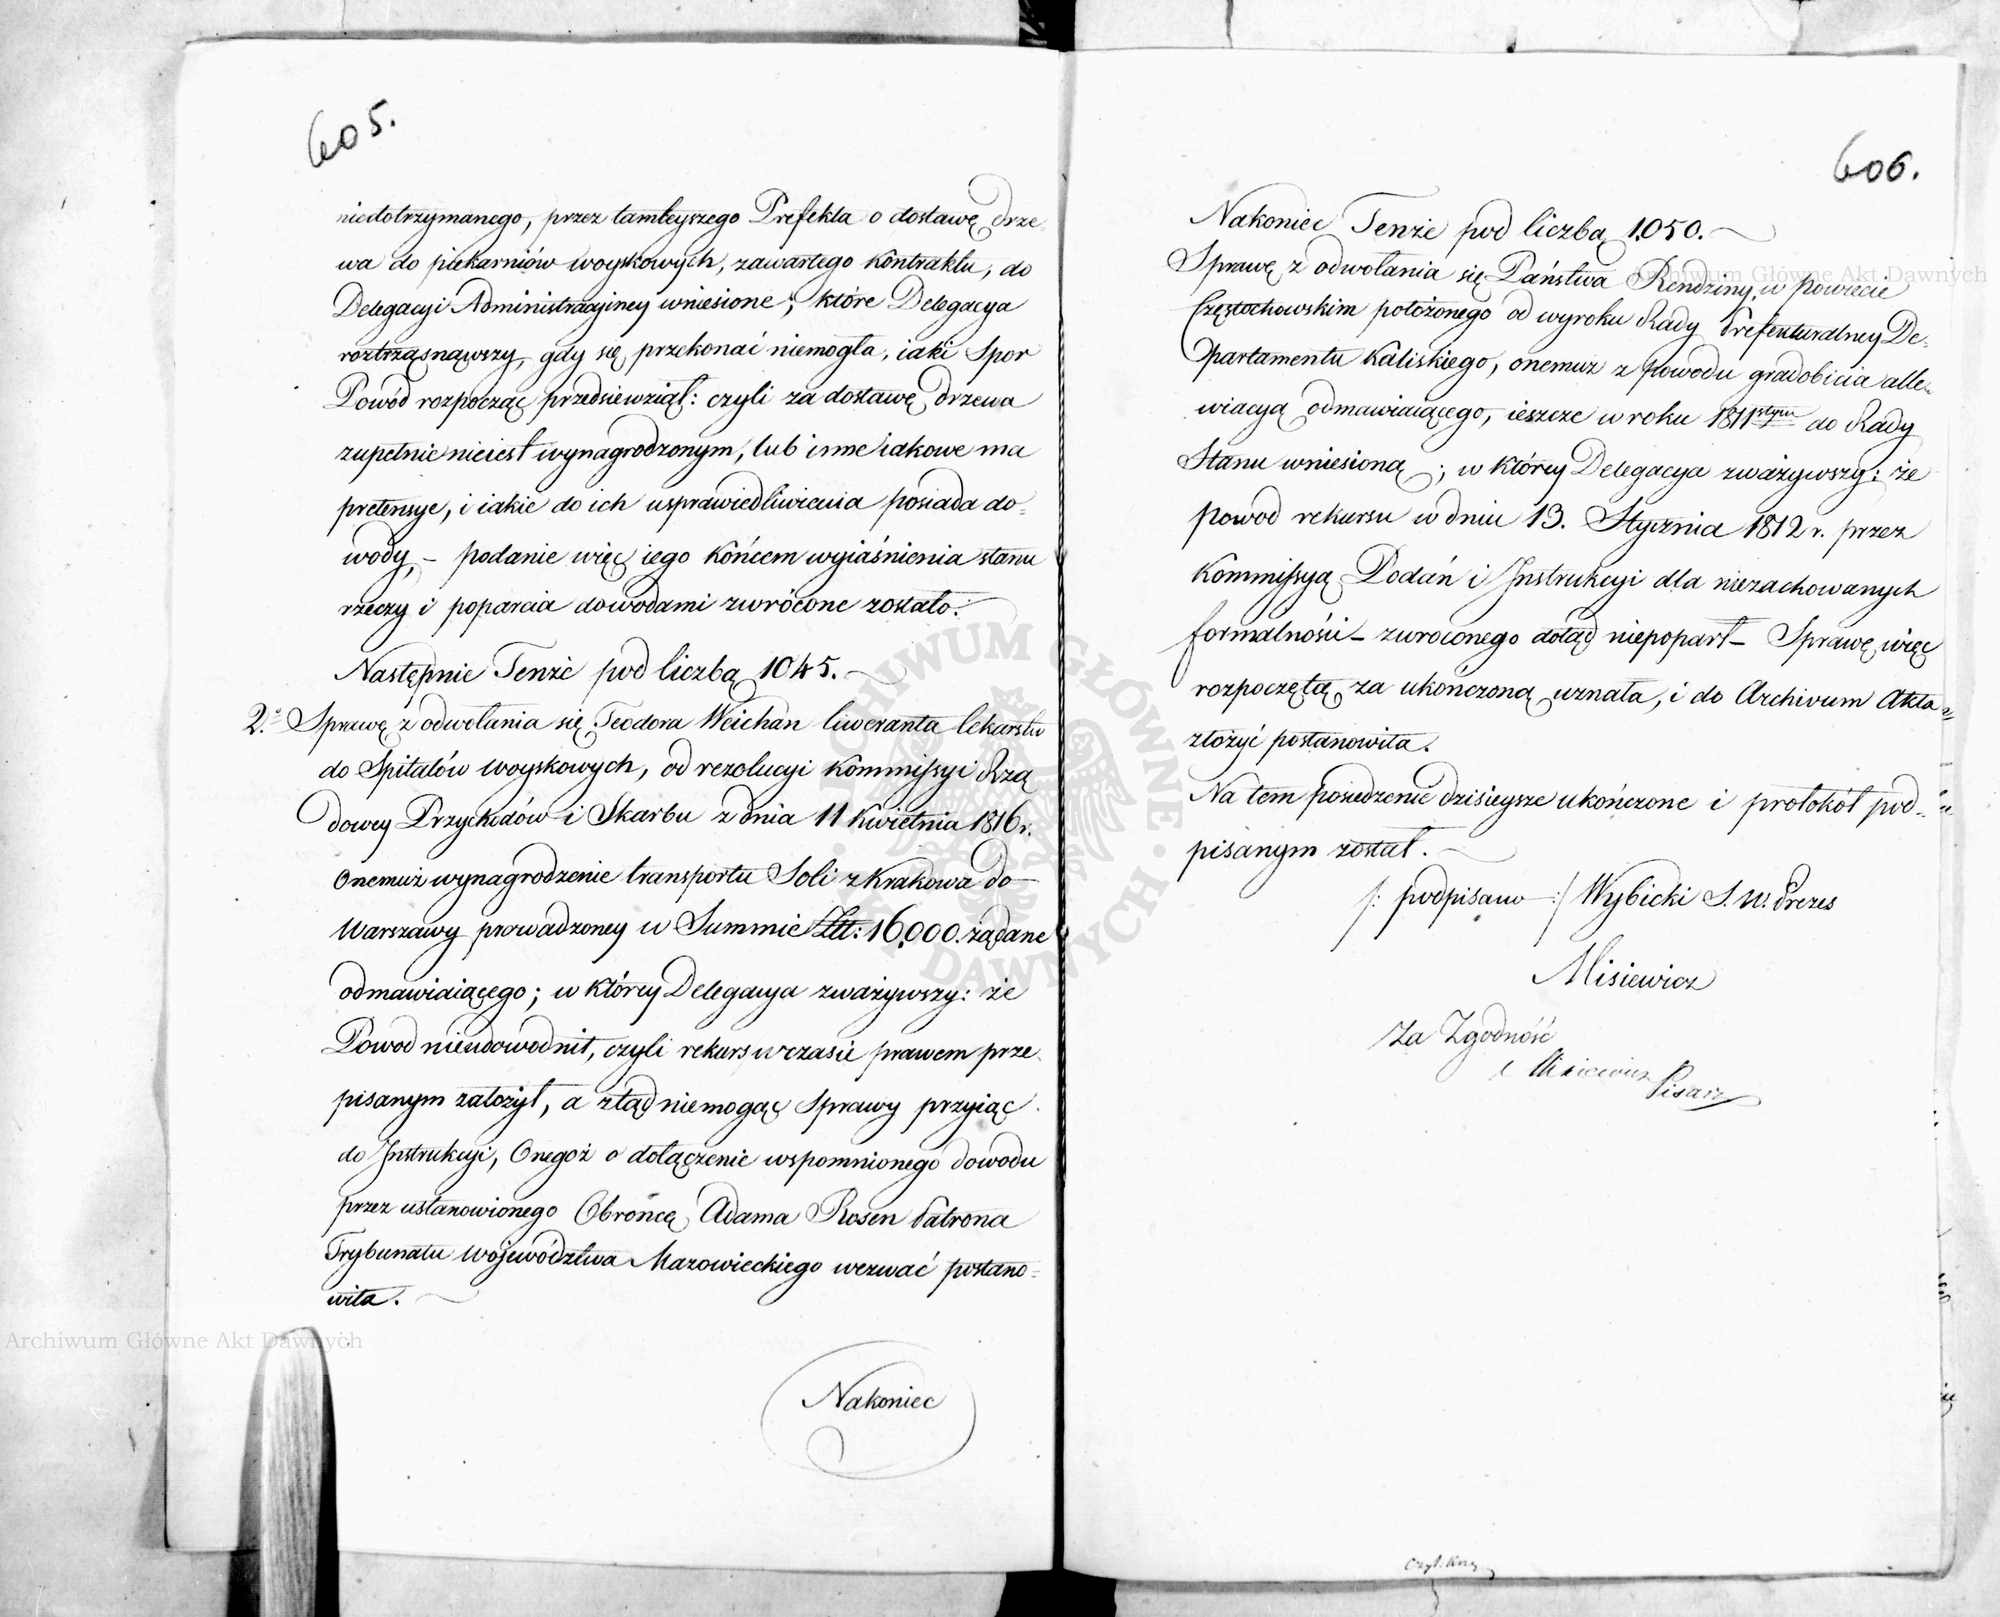 605.
niedotrzymanego, przez tamteyszego Prefekta o dostawę drze-
wa do piekarniów woyskowych, zawartego kontraktu, do
Delegacyi Administracyiney wniesione; które Delegacya
roztrząsnąwszy, gdy się przekonać niemogła, iaki Spor
Powód rozpocząć przedsiewziął: czyli za dostawę drzewa
zupełnie nieiest wynagrodzonym, lub inne iakowe ma
pretensye, i iakie do ich usprawiedliwienia posiada do-
wody, – podanie więc iego końcem wyiaśnienia stanu
rzeczy i poparcia dowodami zwrócone zostało.
Następnie Tenże pod liczbą 1045.
2.° Sprawę z odwołania się Teodora Weichan liweranta lekarstw
do Spitalów woyskowych, od rezolucyi Kommissyi Rzą
dowey Przychodów i Skarbu z dnia 11 Kwietnia 1816 r.
Onemuż wynagrodzenie transportu Soli z Krakowa do
Warszawy prowadzoney w Summie Złt: 16,000. żądane
odmawiaiącego; w którey Delegacya zważywszy: że
Powod nieudowodnił, czyli rekurs w czasie prawem prze-
pisanym założył, a ztąd niemogąc Sprawy przyiąć
do Instrukcyi, Onegoż o dołączenie wspomnionego dowodu
przez ustanowionego Obrońcę Adama Rosen Patrona
Trybunału Województwa Mazowieckiego wezwać postano-
wiła.
Nakoniec
606.
Nakoniec Tenże pod liczbą 1,050.
Sprawę z odwołania się Państwa Rendziny, w powiecie
Częstochowskim położonego od wyroku Rady Prefekturalney De-
partamentu Kaliskiego, onemuż z powodu gradobicia alle-
wiacyą odmawiaiącego, ieszcze w roku 1811stym do Rady
Stanu wniesioną; w którey Delegacya zważywszy: że
powod rekursu w dniu 13. Stycznia 1812 r. przez
Kommissyą Podań i Instrukcyi dla niezachowanych
formalności – zwroconego dotąd niepoparł – Sprawę więc
rozpoczętą za ukończoną uznała, i do Archivum Akta
złożyć postanowiła.
Na tem posiedzenie dzisieysze ukończone i protokół pod-
pisanym został.
/: podpisano :/ Wybicki S. W. Prezes
Misiewicz
Za Zgodność
Misiewicz Pisarz
Archiwum Główne Akt Dawnych
Archiwum Główne Akt Dawnych
ARCHIWUM GŁÓWNE AKT DAWNYCH